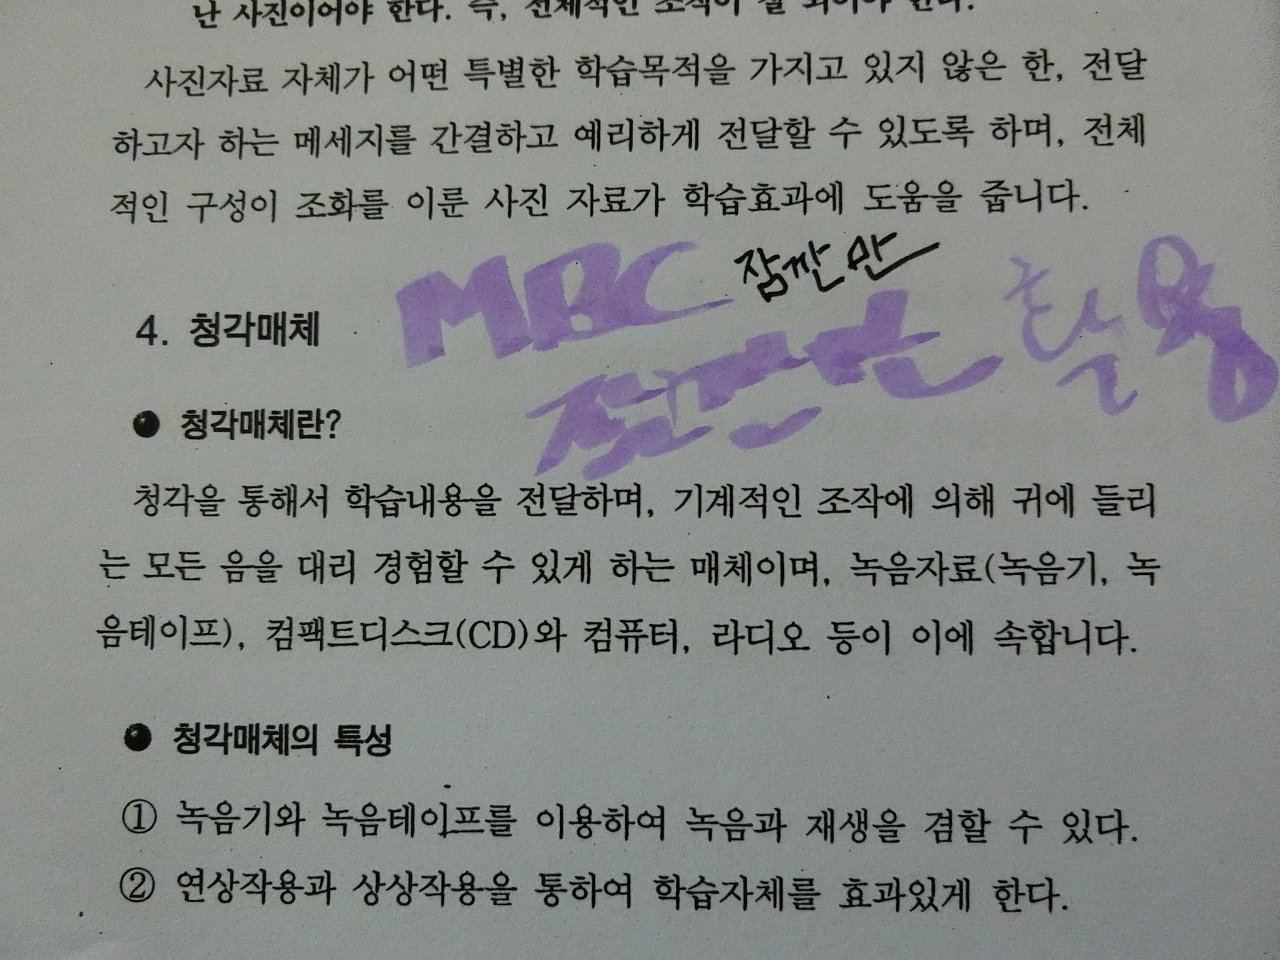 난 사진이어야 한다. 즉, 전체적인 조작이 잘 되어야 한다.
사진자료 자체가 어떤 특별한 학습목적을 가지고 있지 않은 한, 전달
하고자 하는 메세지를 간결하고 예리하게 전달할 수 있도록 하며, 전체
적인 구성이 조화를 이룬 사진 자료가 학습효과에 도움을 줍니다.
MBC 잠깐만
4. 청각매체
활용
● 청각매체란?
청각을 통해서 학습내용을 전달하며, 기계적인 조작에 의해 귀에 들리
는 모든 음을 대리 경험할 수 있게 하는 매체이며, 녹음자료(녹음기, 녹
음테이프), 컴팩트디스크(CD)와 컴퓨터, 라디오 등이 이에 속합니다.
● 청각매체의 특성
① 녹음기와 녹음테이프를 이용하여 녹음과 재생을 겸할 수 있다.
② 연상작용과 상상작용을 통하여 학습자체를 효과있게 한다.